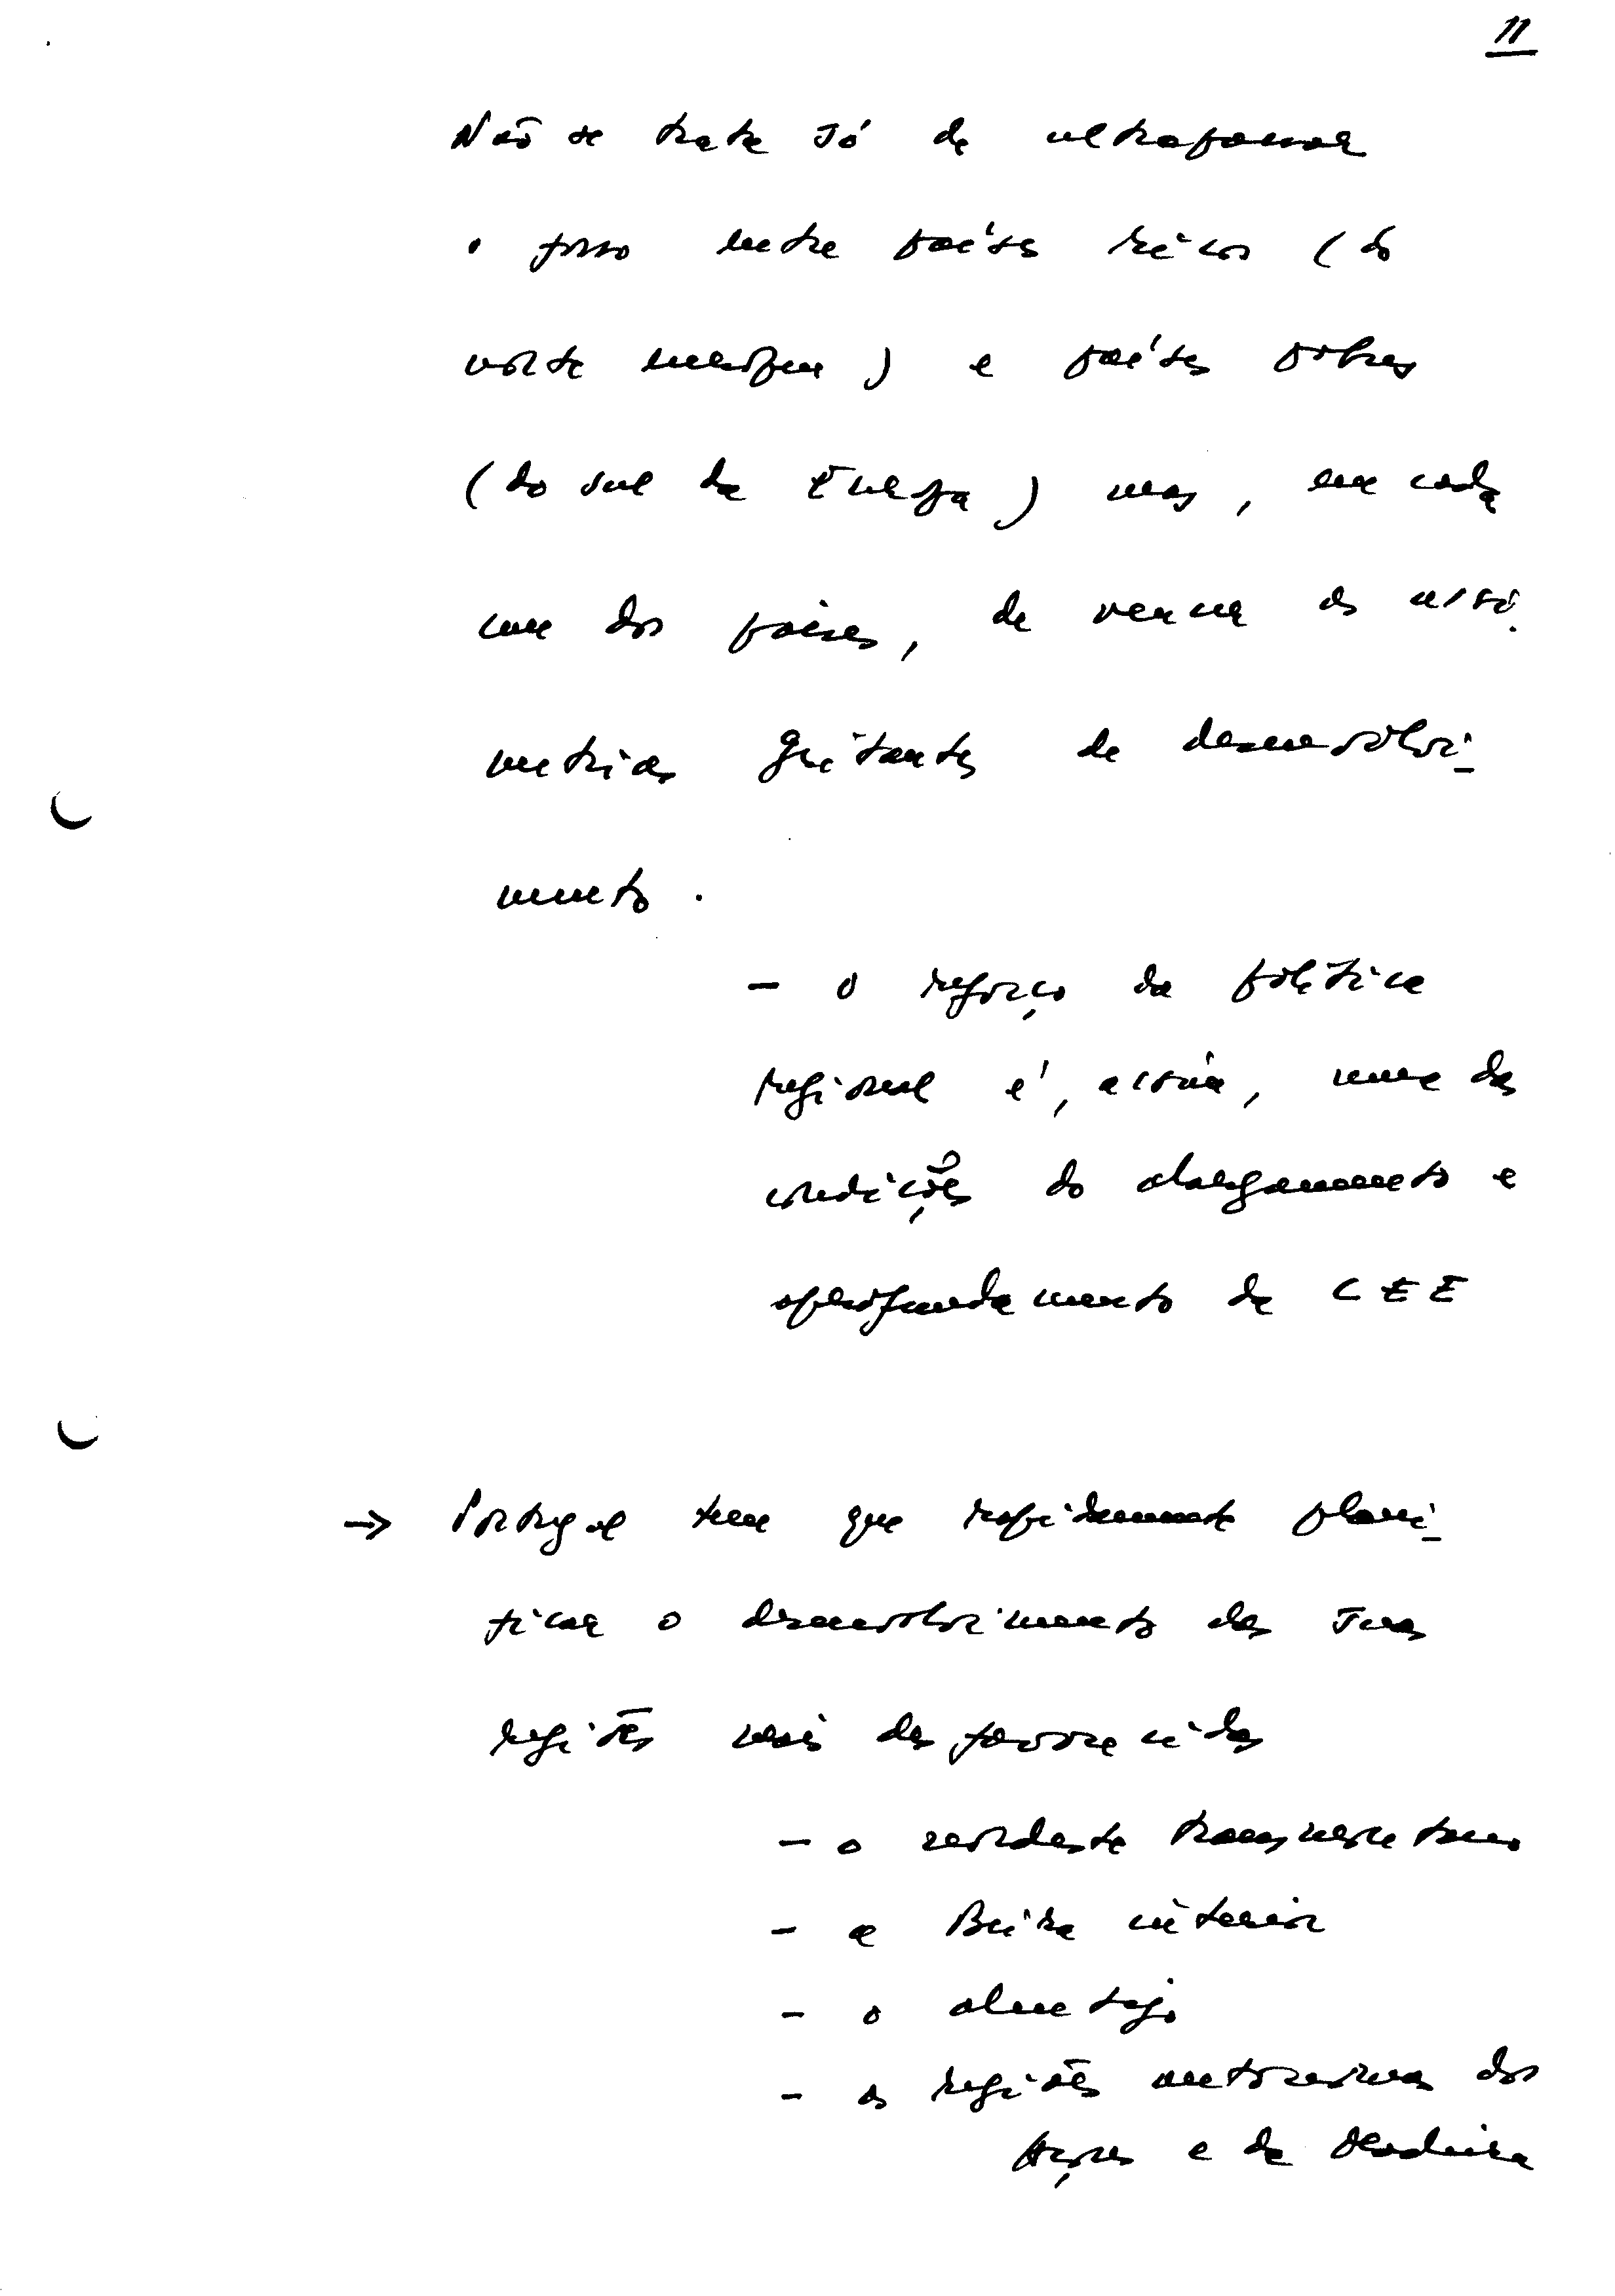 11
Não se trata só de ultrapassar
o fosso entre países ricos (do
norte europeu) e países pobres
(do sul da Europa) mas, em cada
um dos países, de vencer as assi-
metrias gritantes de desenvolvi-
mento.
- o reforço da política
regional é, assim, uma das
condições do alargamento e
aprofundamento da CEE
→ Portugal tem que rapidamente plani-
ficar o desenvolvimento das suas
regiões mais desfavorecidas
- o nordeste transmontano
- a Beira interior
- o alentejo
- as regiões autónomas dos
Açores e da Madeira